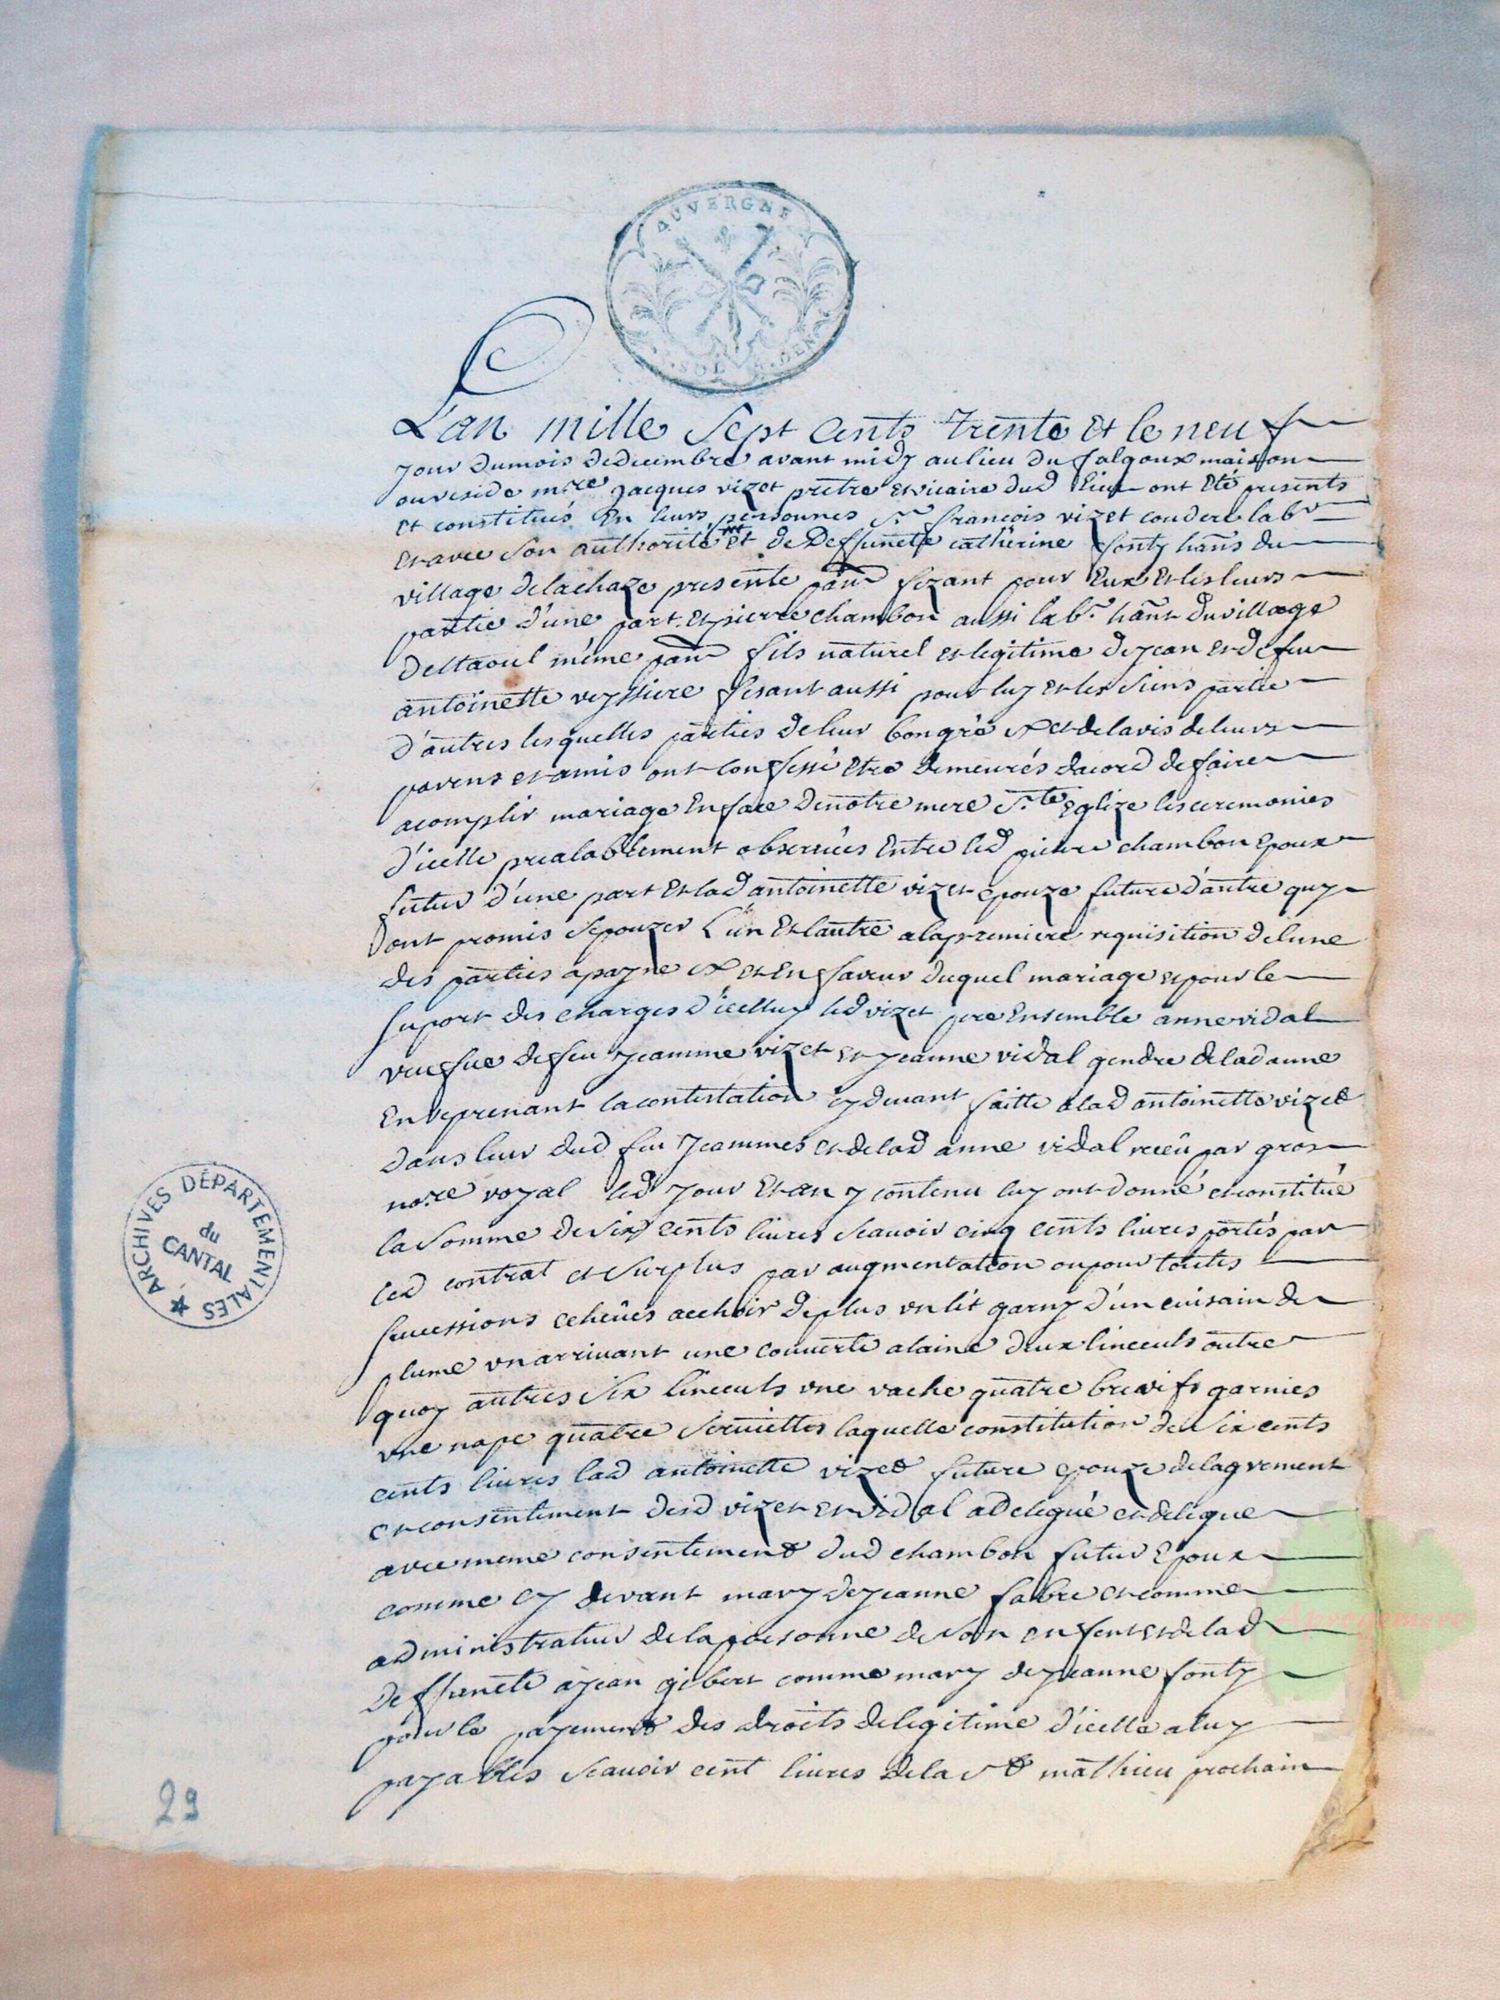 AUVERGNE
SOL DEN
L'an mille sept cents trente et le neuf
jour du mois de decembre avant midy au lieu du falgoux maison
ou reside m.re jacques vizet prêtre et vicaire dud lieu ont été presents
et constitués en leurs personnes s.r françois vizet couderc lab.r
et avec son authorité et de deffuncte catherine fonty hañs du
village de la chaze presente pañ fezant pour eux et les leurs
partie d'une part. et pierre chambon aussi lab.r hãnt du village
del taoul même pañ fils naturel et legitime de jean et de feue
antoinette veyssiere fesant aussi pour luy et les siens partie
d'autres lesquelles parties de leur bon gré et de lavis de leurs
parens et amis ont confessé etre demeurés dacord de faire
acomplir mariage en face de notre mere s.te eglize les ceremonies
d'icelle prealablement observées entre led pierre chambon epoux
futur d'une part et lad antoinette vizet epouze future d'autre quy
ont promis sepouzer l'un et lautre a la premiere requisition de lune
des parties a payne et en faveur duquel mariage et pour le
suport des charges d'icelluy led vizet pere ensemble anne vidal
veufve de feu jeamme vizet et jeanne vidal gendre de lad anne
en reprenant la contestation cy devant faitte a lad antoinette vizet
dans leur dud feu jeammes et de lad anne vidal receu par gros
no.re royal led jour et an y contenu luy ont donné et constitué
la somme de six cents livres scavoir cinq cents livres portés par
led contrat et surplus par augmentation ou pour toutes
successions echeües a echoir de plus un lit garny d'un cuisain de
plume un arrivant une couverte a laine deux linceuls outre
quoy autres six linceuls une vache quatre brevifs garnies
une nape quatre serviettes laquelle constitution de six cents
cents livres lad antoinette vizet future epouze de lagrement
et consentement desd vizet et vidal a delegué et delegue
avec meme consentement dud chambon futur epoux
comme cy devant mary de jeanne fabre et comme
administrateur de la personne de son enfent et de lad
deffuncte a jean gibert comme mary de jeanne fonty
pour le payement des droits de legitime d'icelle a luy
payables scavoir cent livres de la s.t mathieu prochain
ARCHIVES DÉPARTEMENTALES
du
CANTAL
29